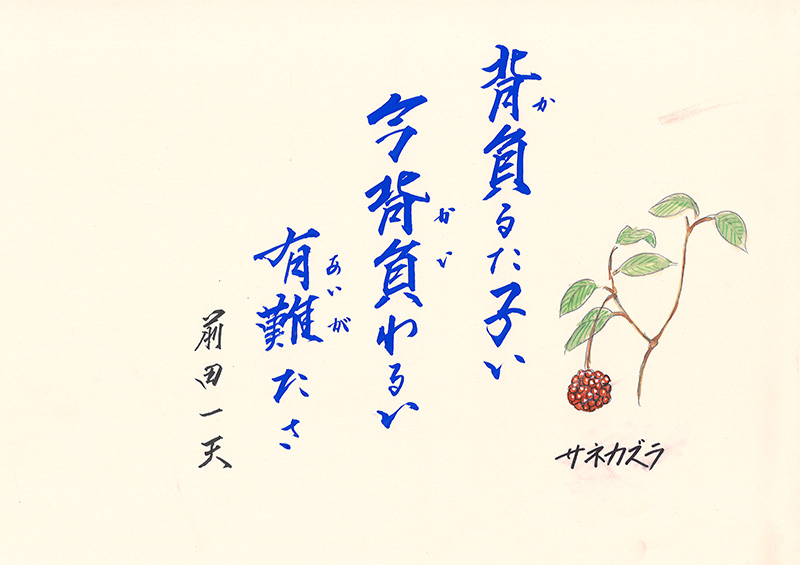 背負るた子い
か
今背負わるい
かい
有難たさ
あいが
前田一天
サネカズラ